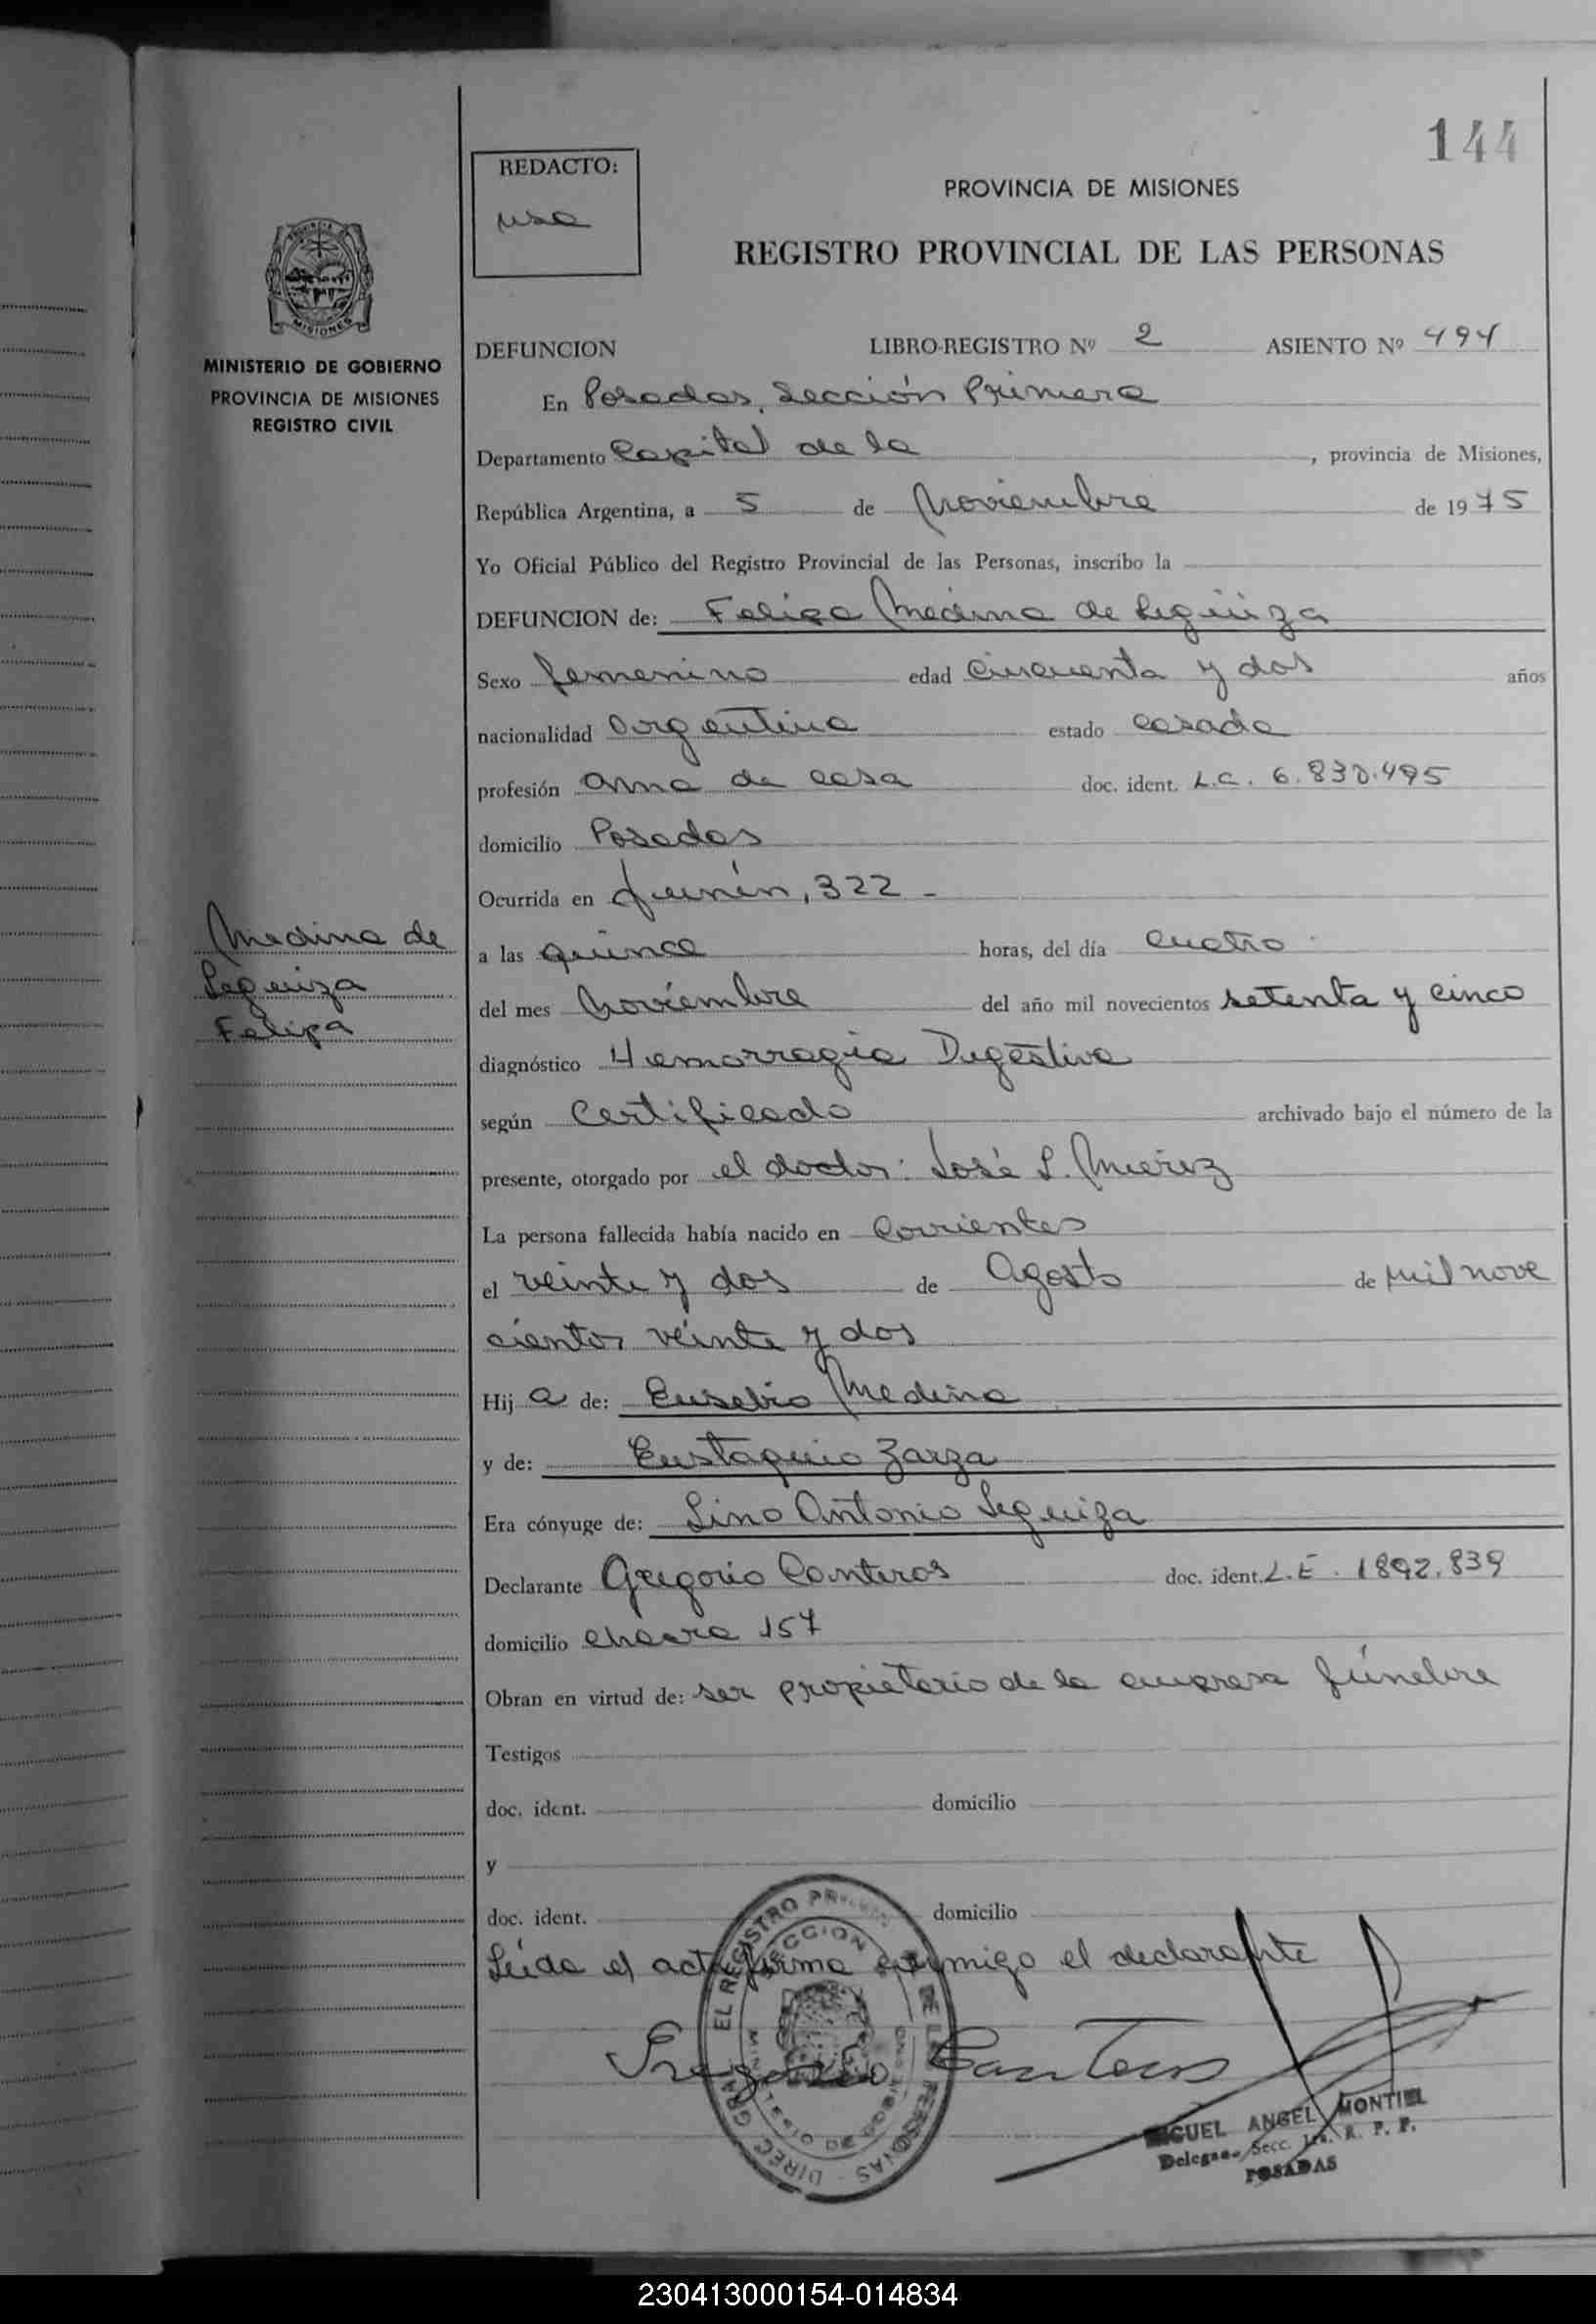 144
REDACTO:
PROVINCIA DE MISIONES
REGISTRO PROVINCIAL DE LAS PERSONAS
MISIONES
MINISTERIO DE GOBIERNO
PROVINCIA DE MISIONES
REGISTRO CIVIL
DEFUNCION LIBRO-REGISTRO Nº 2 ASIENTO Nº 494
En Posadas, Sección Primera
Departamento Capital de la, provincia de Misiones,
República Argentina, a 5 de Noviembre de 1975
Yo Oficial Público del Registro Provincial de las Personas, inscribo la
DEFUNCION de: Felipa Medina de Legüiza
Sexo femenino edad Cincuenta y dos años
nacionalidad Argentina estado casada
profesión ama de casa doc. ident. L.C. 6.830.495
domicilio Posadas
Ocurrida en Junín, 322 -
a las quince horas, del día cuatro
del mes Noviembre del año mil novecientos setenta y cinco
diagnóstico Hemorragia Digestiva
según Certificado archivado bajo el número de la
presente, otorgado por el doctor: José L.
La persona fallecida había nacido en Corrientes
el veinte y dos de Agosto de mil nove
cientos veinte y dos
Hija de: Eusebio Medina
y de: Eustaquia Zarza
Era cónyuge de: Lino Antonio Leguiza
Declarante Gregorio Canteros doc. ident. L.E. 1892.839
domicilio chacra 157
Obran en virtud de: ser propietario de la empresa fúnebre
Testigos
doc. ident. domicilio
y
doc. ident. domicilio
Leída el acta firma conmigo el declarante
Gregorio Canteros
Medina de
Leguiza
Felipa
MIGUEL ANGEL MONTIEL
Delegado Secc. 1ra. R. P. P.
POSADAS
230413000154-014834